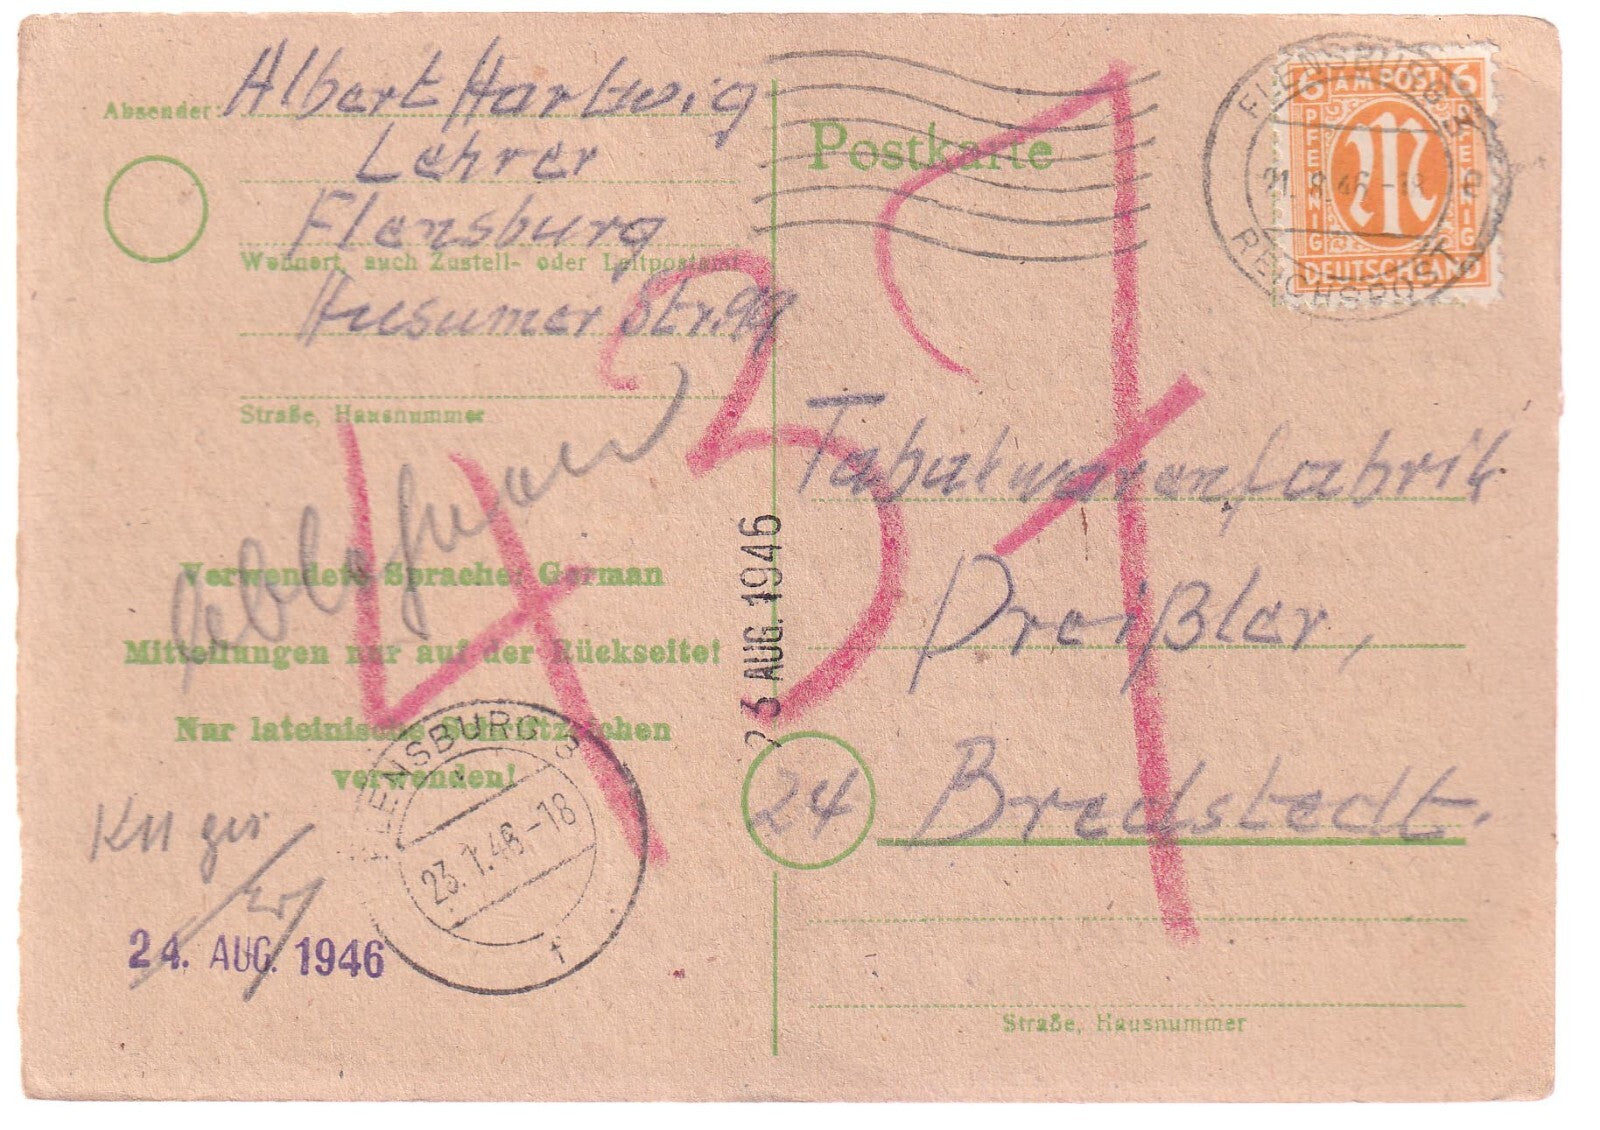 Absender: Albert Hartwig
Lehrer
Flensburg
Wohnort, auch Zustell- oder Leitpostamt
Husumer Str. 99
Straße, Hausnummer
Verwendete Sprache: German
Mitteilungen nur auf der Rückseite!
Nur lateinische Schriftzeichen
verwenden!
FLENSBURG 3
23.1.46.-18
f
24. AUG. 1946
23 AUG. 1946
Postkarte
FLENSBURG 3
21.8.46-18
REICHSPOST
6 AM POST 6
PFENNIG
PFENNIG
M
DEUTSCHLAND
Tabakwarenfabrik
Preißler,
24 Bredstedt.
Straße, Hausnummer